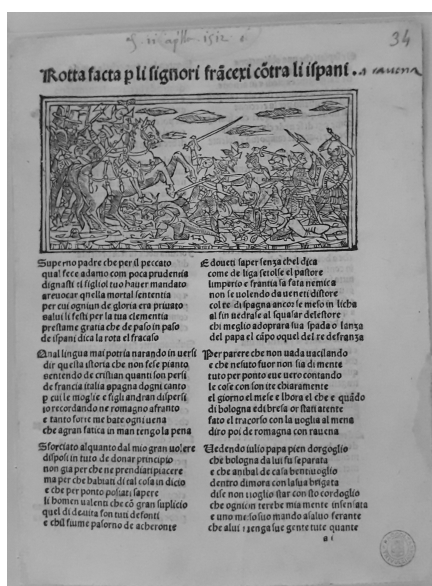 34
Rotta facta p li signori frãcexi cõtra li ispani . a rauena
Superno padre che per il peccato
qual fece adamo com poca prudentia
dignasti il figliol tuo hauer mandato
a reuocar quella mortal sententia
per cui ogniun de gloria era priuato
salui li festi per la tua clementia
prestame gratia che de paso in paso
de ispani dica la rota el fracaso
Qual lingua mai potria narando in uersi
dir questa istoria che non fese pianto
sentendo de cristian quanti son persi
de francia italia spagna dogni canto
p cui le moglie e figli andran dispersi
io recordando ne romagno afranto
e tanto forte me bate ogni uena
che agran fatica in man tengo la pena
Sforciato alquanto dal mio gran uolere
disposi in tuto de donar principio
non gia per che ne prendiati piacere
ma per che habiati di tal cosa indicio
e che per ponto posiati sapere
li homen ualenti che cõ gran suplicio
quel di de uita son tuti defonti
e chil fiume pasorno de acheronte
E doueti saper senza chel dica
come de liga se tolse el pastore
limperio e frantia sa fata nemica
non se uolendo da ueneti distore
col re di spagna ancor se meso in licha
al fin uedrase al squasar del estore
chi meglio adoprara sua spada o lanza
del papa el cãpo o quel del re de franza
Per parere che non uada uacilando
e che nesuto fuor non sia di mente
tuto per ponto ue uero contando
le cose con son ite chiaramente
el giorno el mese e lhora el che e quãdo
di bologna ed i bresa or stati atente
fato el tracorso con la uoglia al mena
diro poi de romagna con rauena
Uedendo iulio papa pien dorgoglio
che bologna da lui fu separata
e che anibal de casa bentiuoglio
dentro dimora con la sua brigata
dise non uoglio star con sto cordoglio
che ognion terebe mia mente insensata
e uno meso suo mando a saluo ferante
che a lui uenga sue gente tute quante
a i